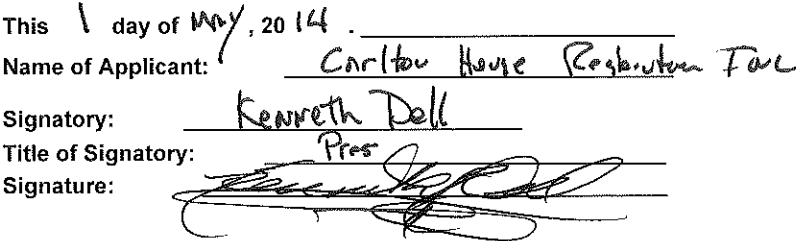 This 1 day of May, 2014 .
Name of Applicant: Carlton House Inc
Signatory: Kenneth Dell
Title of Signatory: Pres
Signature: